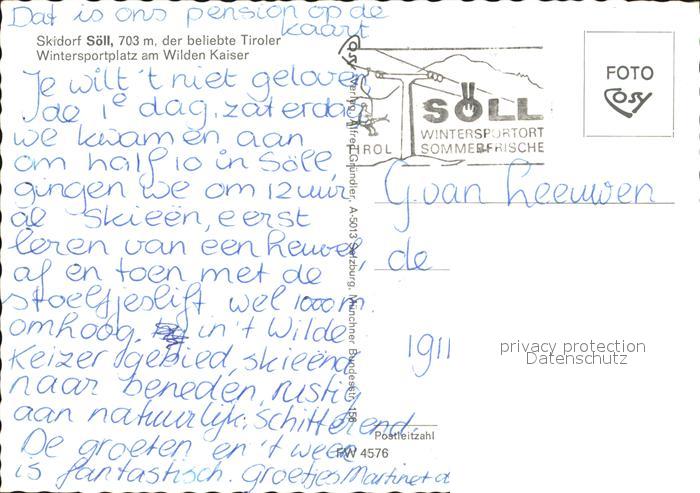 Dat is ons pension op de
kaart
Skidorf Söll, 703 m, der beliebte Tiroler
Wintersportplatz am Wilden Kaiser
Je wilt 't niet geloven
de 1e dag, zaterdag
we kwamen aan
om half 10 in Söll,
gingen we om 12 uur
al skieën, eerst
leren van een heuvel,
af en toen met de
stoeltjeslift wel 1000m
omhoog, in 't Wilde
Keizer gebied, skieënd
naar beneden, rustig
aan natuurlijk, schitterend
De groeten en 't weer
is fantastisch. Groetjes Martinet
Verlag Alfred Gründler, A-5013 Salzburg, Münchner Bundesstr. 156
Cosy
TIROL
SÖLL
WINTERSPORTORT
SOMMERFRISCHE
FOTO
Cosy
G van Leeuwen
de
1911
privacy protection
Datenschutz
Postleitzahl
4576